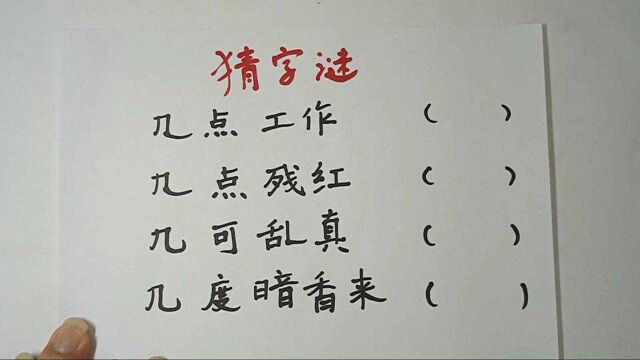 猜字谜
几点工作 ( )
几点残红 ( )
几可乱真 ( )
几度暗香来 ( )